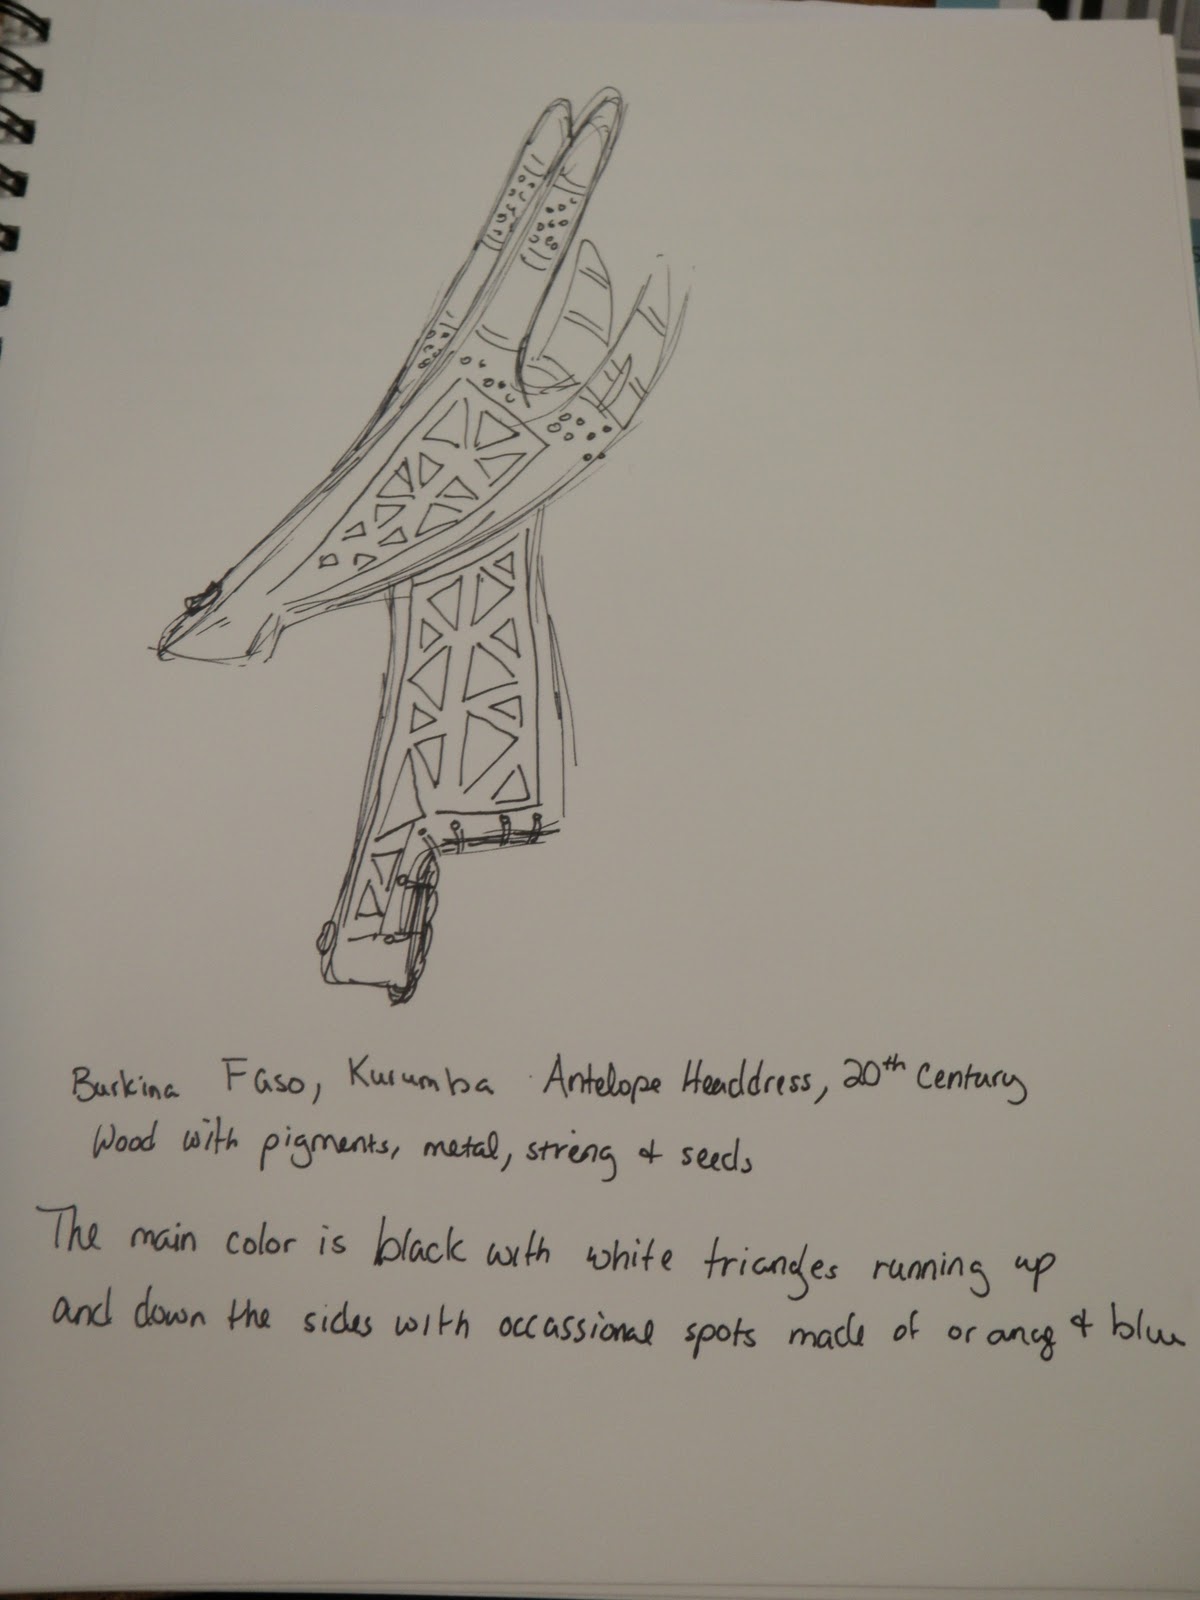 Burkina Faso, Kurumba Antelope Headdress, 20th Century
Wood with pigments, metal, string & seeds
The main color is black with white triangles running up
and down the sides with occassional spots made of orange & blue